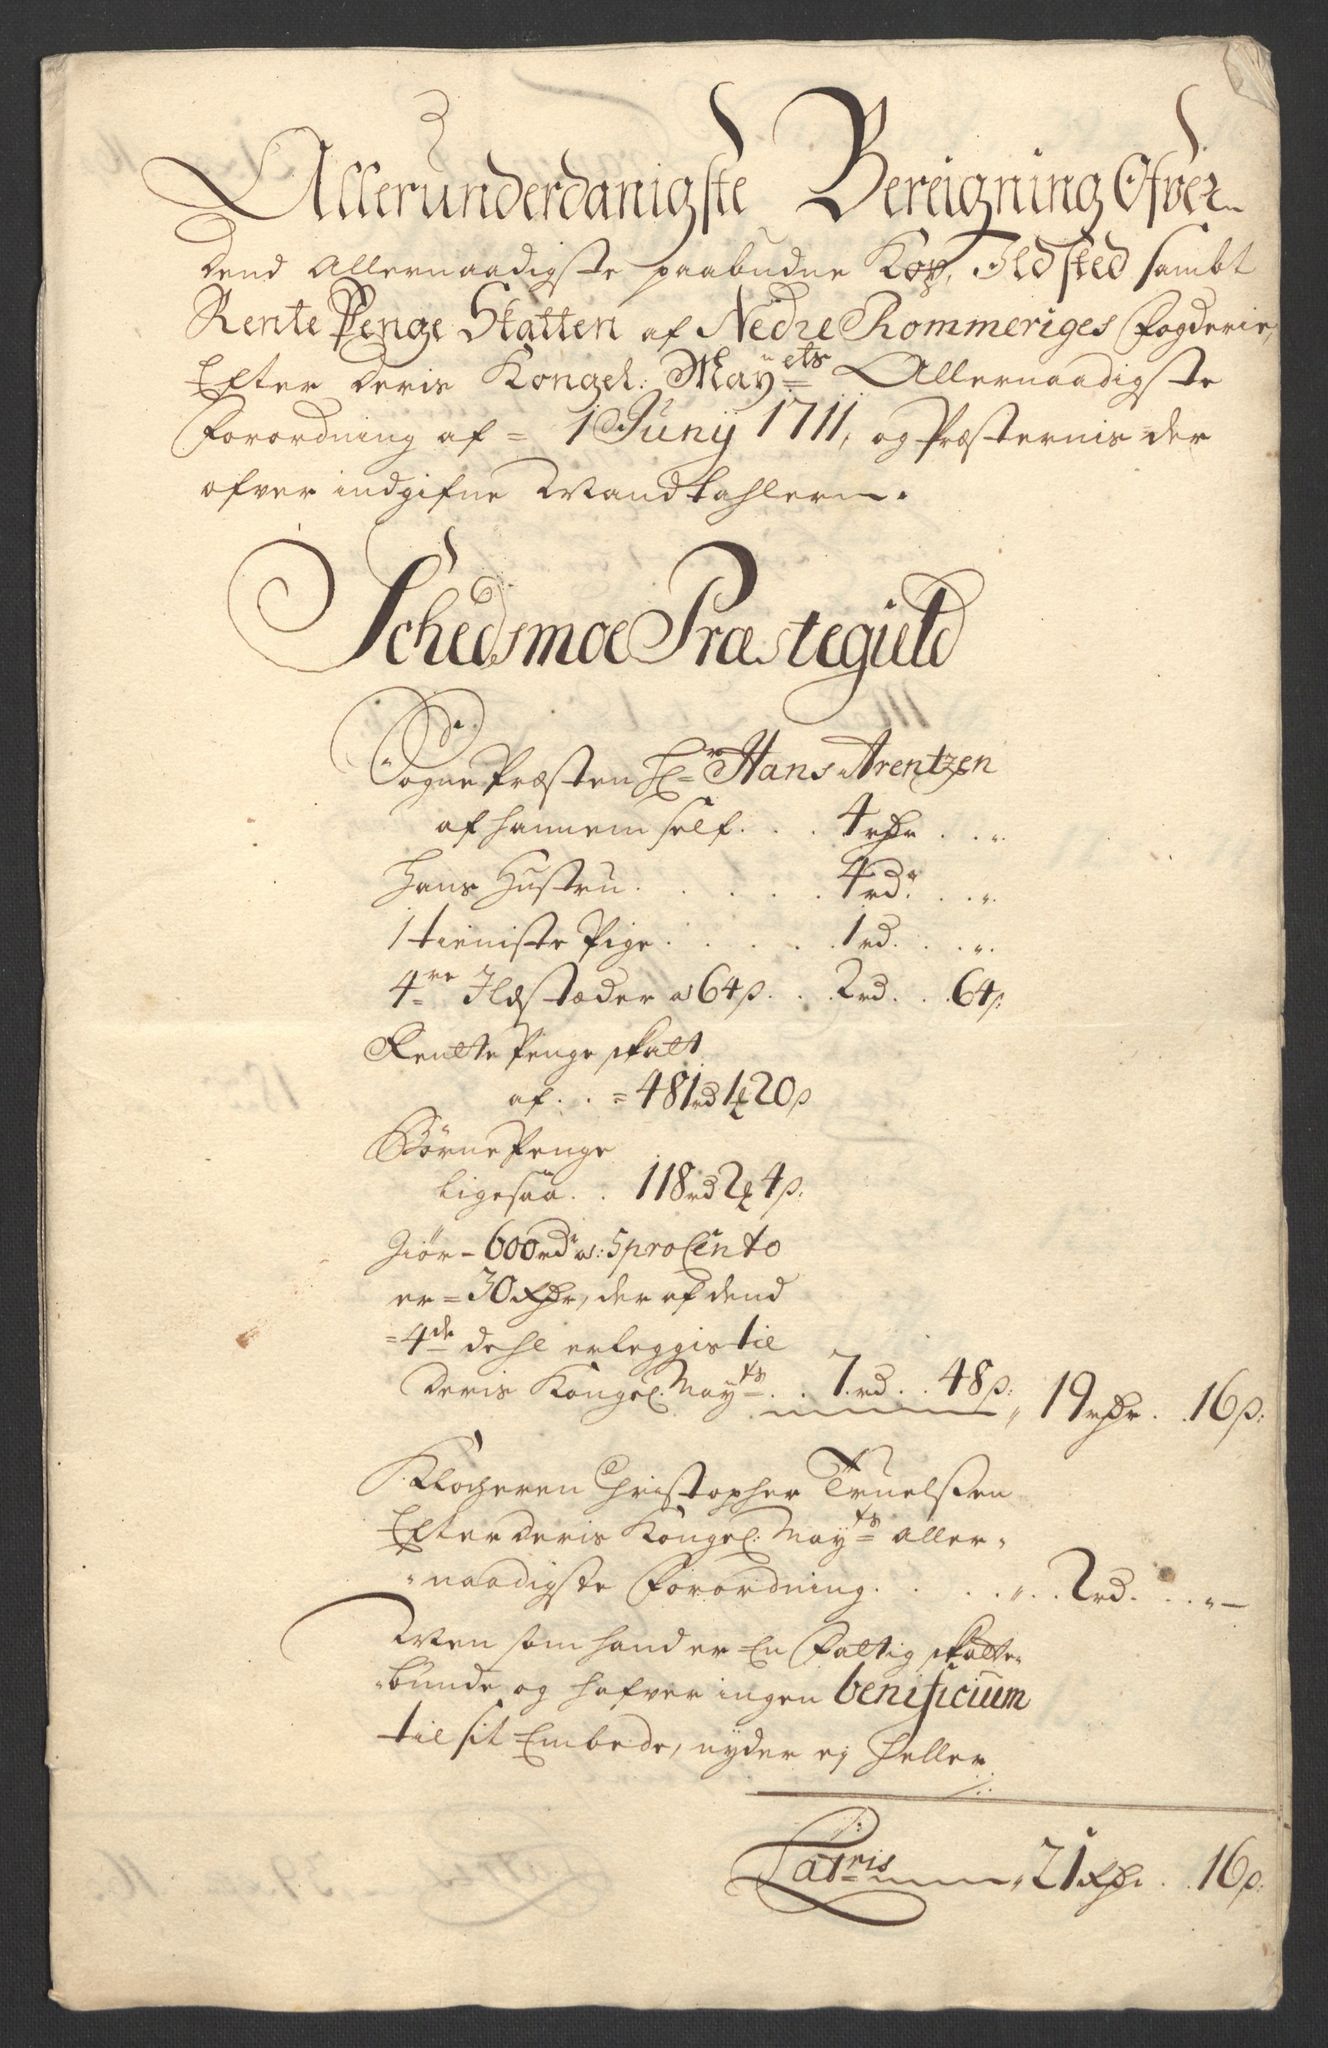 Allerunderdanigste Bereigning Ofver
dend Allernaadigste paabudne Kop, Ildsted sambt
Rente Penge Skatten af Nedre Rommeriges Fogderie,
Efter Deris Kongel: Mayets Allernaadigste
Forordning af = 1 Junij 1711, og Præsternis der
ofver indgifne Mandtahler.
Schedsmoe Præstegield
Sogne Præsten Hr Hans Arentzen
af hannem self . . . 4 rdr . . „.
hans Hustru . . . . . 4 rd. . . „.
1 tieniste Pige . . . . 1 rd. . . „.
4re Ildstæder a 64 s. . . 2 rd. . . 64 s:
Rentte Penge skatt
af . . = 481 rd 1 20 s
Børne Penge
ligesaa . . 118 rd 2 4 s:
Giør - 600 rdr a: 5 pro Cento
er = 30 rdr, der af dend
= 4de dehl erleggis til
Deris Kongel. Mayts . . 7 rd. . 48 s: „ 19 rdr . . 16 s:
Klocheren Christopher Truelsen
Efter Deris Kongel: Mayts aller-
naadigste Forordning . . . . „ . . 2 rd. . . „ —
Men som hand er En Fattig skatte-
bunde og hafver ingen benificium
til sit Embede, nyder ej heller
Latris „ 21 rdr . . 16 s: